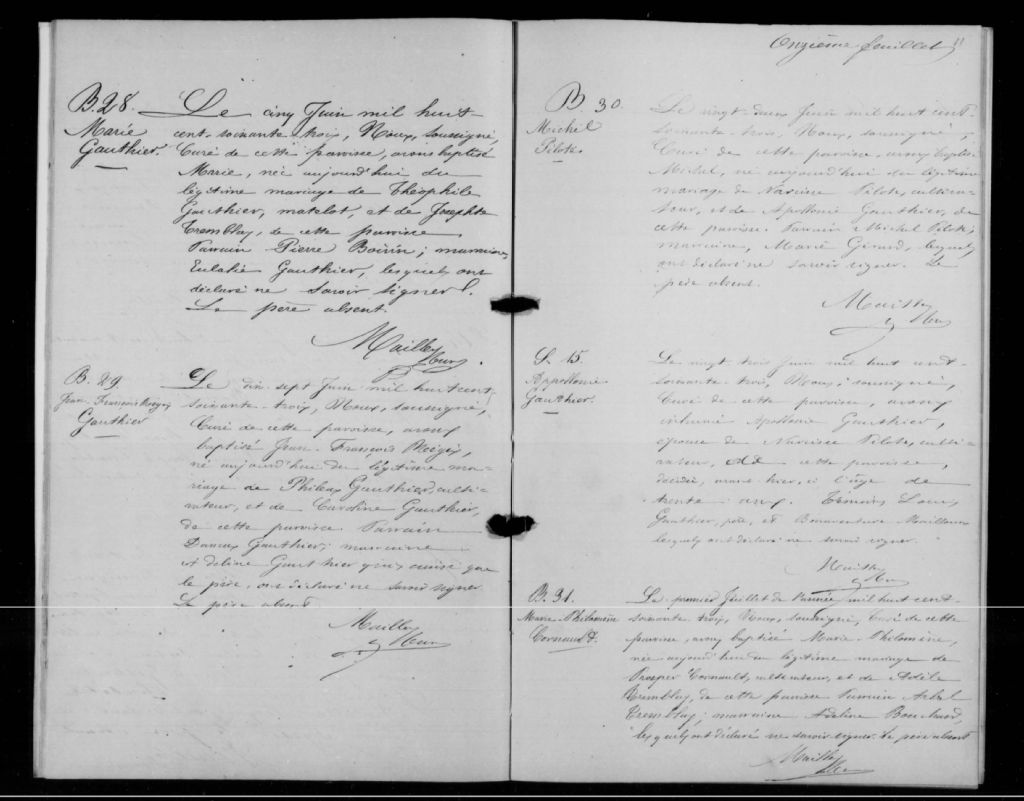 B. 28.
Marie
Gauthier.
Le cinq Juin mil huit
cent soixante trois, Nous, soussigné,
Curé de cette paroisse, avons baptisé
Marie, née aujourd'hui du
légitime mariage de Théophile
Gauthier, matelot, et de Josephte
Tremblay, de cette paroisse.
Parrain Pierre Boivin; marraine,
Eulalie Gauthier, lesquels ont
déclaré ne savoir signer.
Le père absent.
B. 29.
Jean-François Régis
Gauthier
Le dix sept Juin mil huit cent
soixante-trois, Nous, soussigné,
Curé de cette paroisse, avons
baptisé Jean-François Régis,
né aujourd'hui du légitime ma-
riage de Phileas Gauthier, culti-
vateur, et de Caroline Gauthier,
de cette paroisse. Parrain
Gauthier; marraine
Adeline Gauthier qui, ainsi que
le père, ont déclaré ne savoir signer.
Le père absent
Onzième feuillet 11
B. 30.
Michel
Pilote.
Le vingt deux Juin mil huit cent
soixante trois, Nous, soussigné
Curé de cette paroisse, avons baptisé
Michel, né aujourd'hui du légitime
mariage de Narcisse Pilote, cultiva-
teur, et de Apollonie Gauthier, de
cette paroisse. Parrain Michel Pilote;
marraine, Marie Girard, lesquels
ont déclaré ne savoir signer. Le
père absent.
S. 15.
Appollonie
Gauthier.
Le vingt trois Juin mil huit cent
soixante-trois, Nous, soussigné,
Curé de cette paroisse, avons
inhumé Apollonie Gauthier,
épouse de Narcisse Pilote, culti-
vateur, de cette paroisse,
décédée, avant hier, à l'âge de
trente ans. Témoins Louis
Gauthier, père, et Bonaventure
lesquels ont déclaré ne savoir signer.
B. 31.
Marie-Philomène
Cornault.
Le premier Juillet de l'année mil huit cent
soixante trois, Nous, soussigné, Curé de cette
paroisse, avons baptisé Marie Philomène,
née aujourd'hui du légitime mariage de
Prosper Cornault, cultivateur, et de Adèle
Tremblay, de cette paroisse. Parrain Abel
Tremblay; marraine Adeline Bouchard,
lesquels ont déclaré ne savoir signer. Le père absent